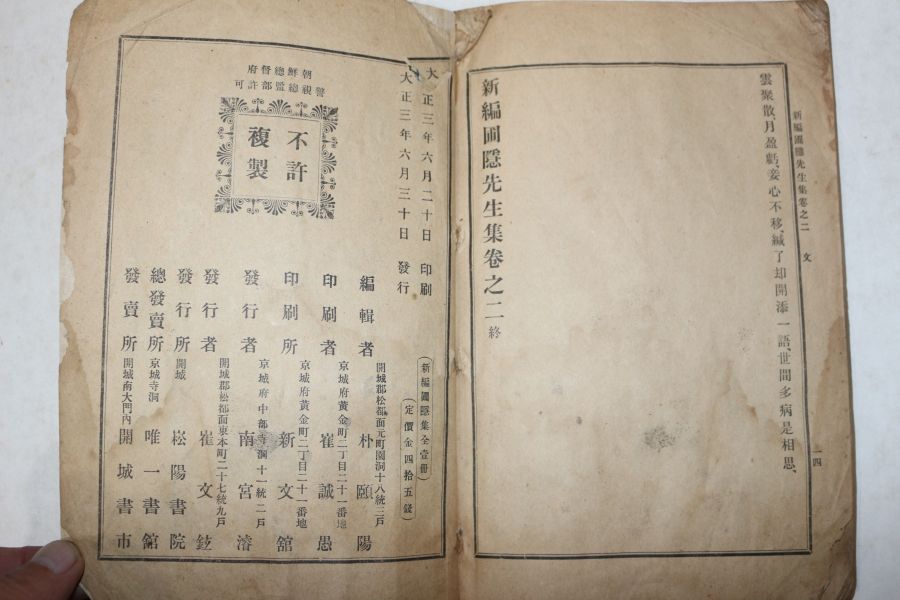 新編圃隱先生集卷之二 文 一四
雲聚散、月盈虧、妾心不移、緘了却開添一語世間多病是相思、
新編圃隱先生集卷之二終
大正三年六月二十日 印刷
大正三年六月三十日 發行
朝鮮總督府
警視總監部許可
不許
複製
(新編圃隱集全壹冊)
(定價金四拾五錢)
編輯者 開城郡松都面元町園洞十八統三戶 朴頤陽
印刷者 京城府黃金町二丁目二十一番地 崔誠愚
印刷所 京城府黃金町二丁目二十一番地 新文舘
發行者 京城府中部寺洞十一統二戶 南宮濬
發行者 開城郡松都面東本町二十七統九戶 崔文
發行所 開城 崧陽書院
總發賣所 京城寺洞 唯一書舘
發賣所 開城南大門內 開城書市